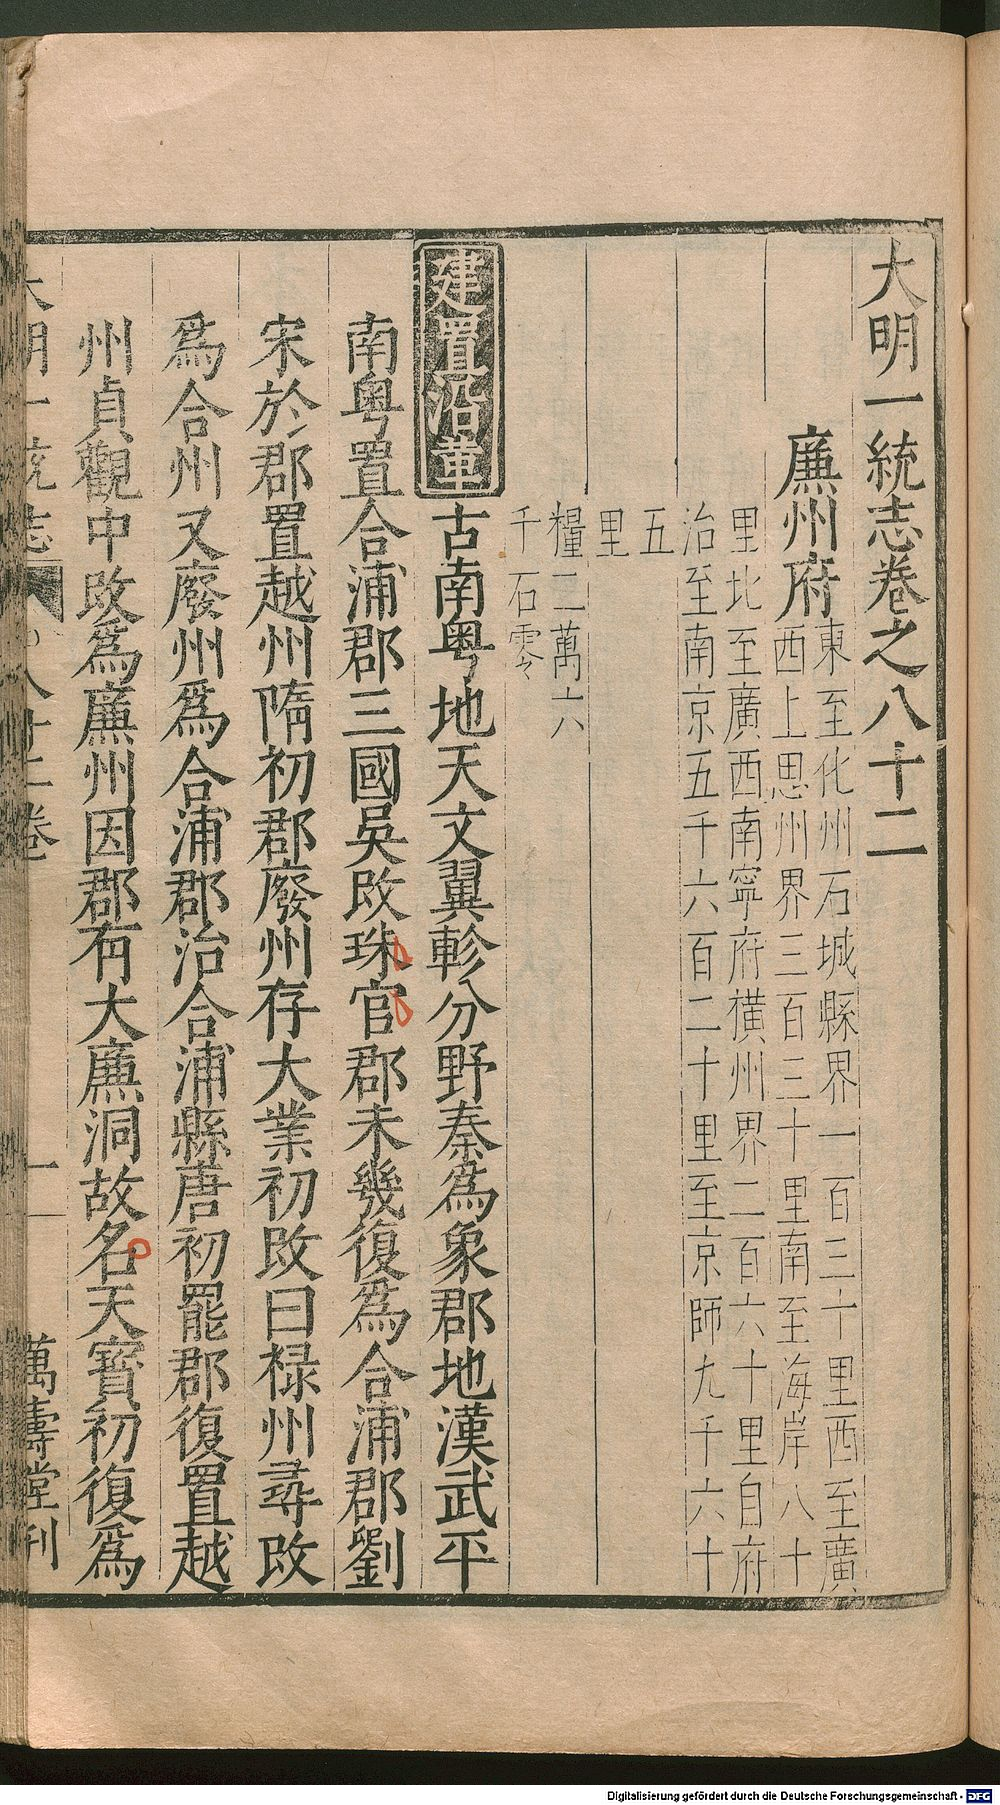 大明一統志卷之八十二
廉州府
東至化州石城縣界一百三十里西至廣
西上思州界三百三十里南至海岸八十
里北至廣西南寧府橫州界二百六十里自府
治至南京五千六百二十里至京師九千六十
五
里
糧二萬六
千石零
建置沿革
古南粵地天文翼軫分野秦爲象郡地漢武平
南粵置合浦郡三國吳改珠官郡未幾復爲合浦郡劉
宋於郡置越州隋初郡廢州存大業初改曰祿州尋改
爲合州又廢州爲合浦郡治合浦縣唐初罷郡復置越
州貞觀中改爲廉州因郡有大廉洞故名天寶初復爲
大明一統志 八十二卷 一 萬壽堂刊
Digitalisierung gefördert durch die Deutsche Forschungsgemeinschaft - DFG